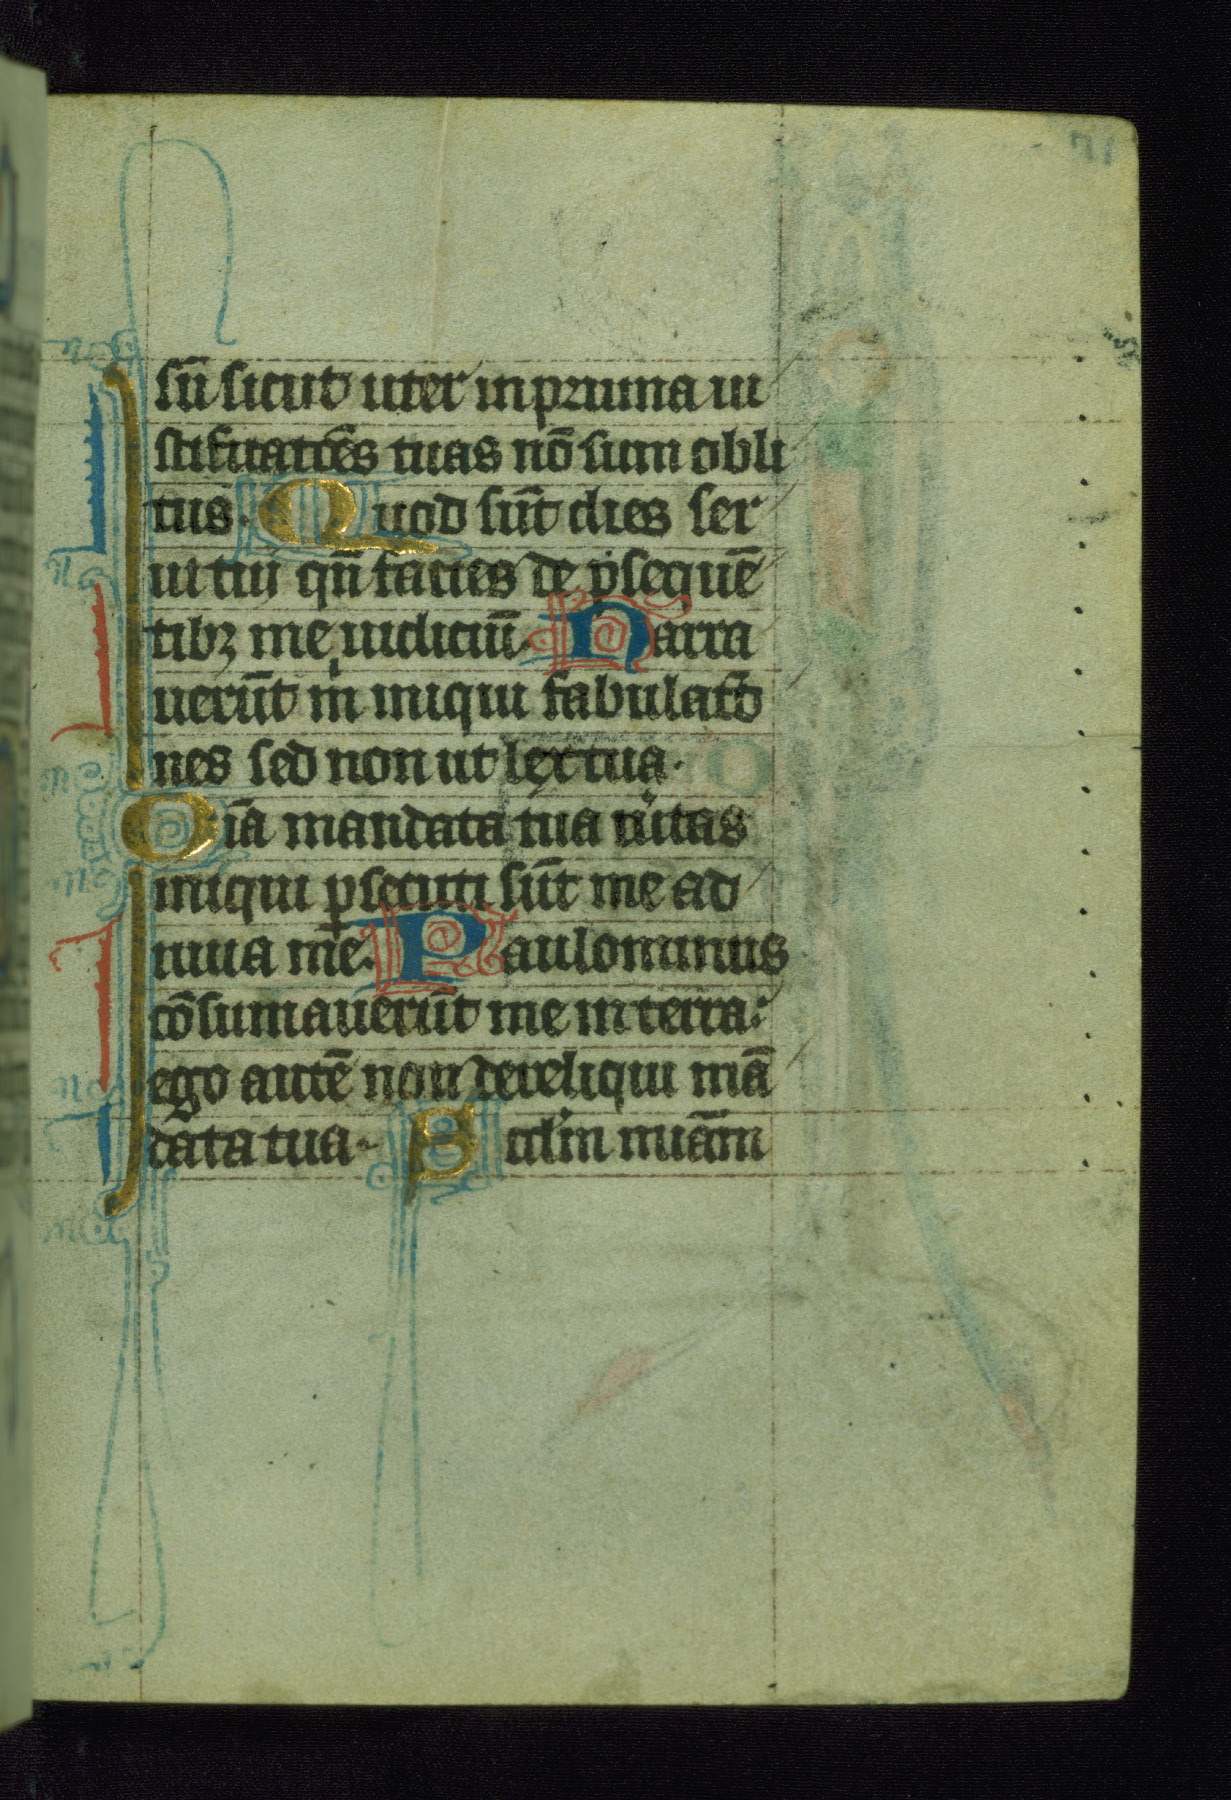 sū sicut uter in pruina iu
stificatiōes tuas nō sum obli
tus. Quod sūt dies ser
ui tui qn̄ facies de ꝑsequē
tibꝫ me iudiciū. Narra
uerūt m iniqui fabulatō
nes sed non ut lex tua.
Oīa mandata tua uitas
iniqui ꝑsecuti sūt me ad
iuua mē. Paulominus
cōsumauerūt me in terra:
ego autē non dereliqui mā
data tua. S cdm̄ miām